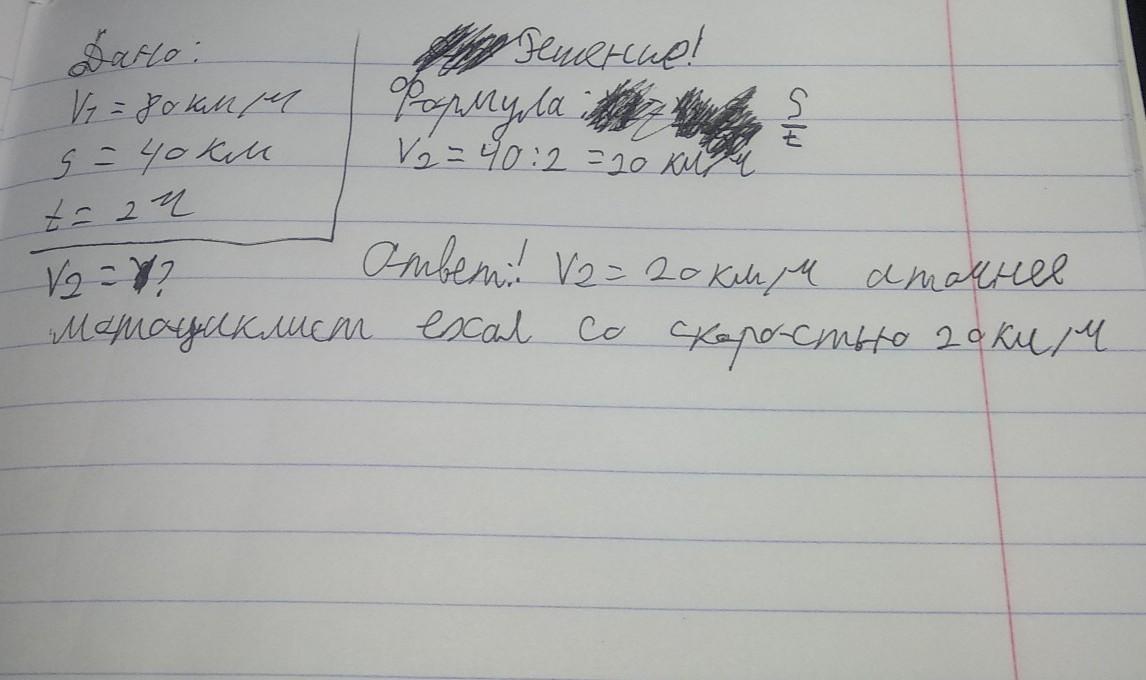 Дано:
V1 = 80 км/ч
s = 40 км
t = 2 ч
V2 = ?
Решение!
Формула: S/t
V2 = 40 : 2 = 20 км/ч
Ответ! V2 = 20 км/ч а точнее
матоциклист ехал со скоростью 20 км/ч